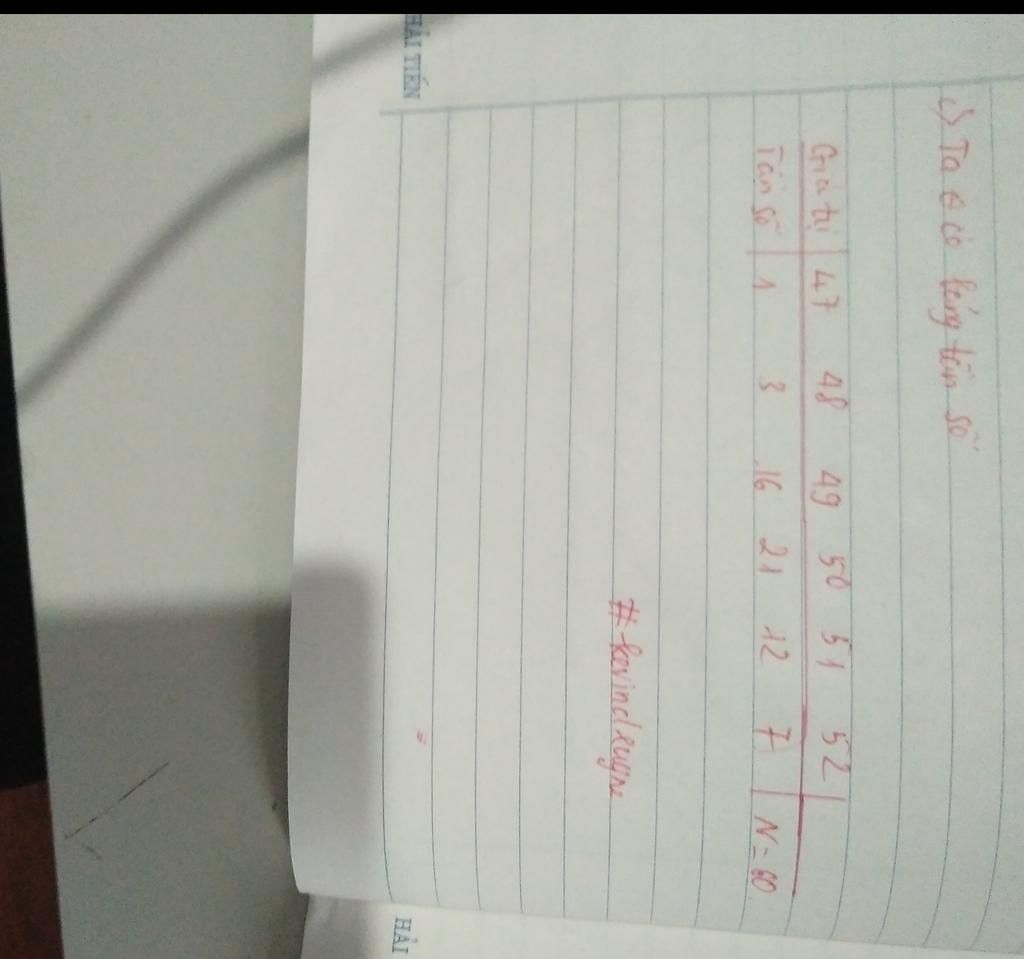 c) Ta có bảng tần số
Giá trị 47 48 49 50 51 52
Tần số 1 3 16 21 12 7 N = 60
#kevindeuyne
HẢI TIẾN
HẢI